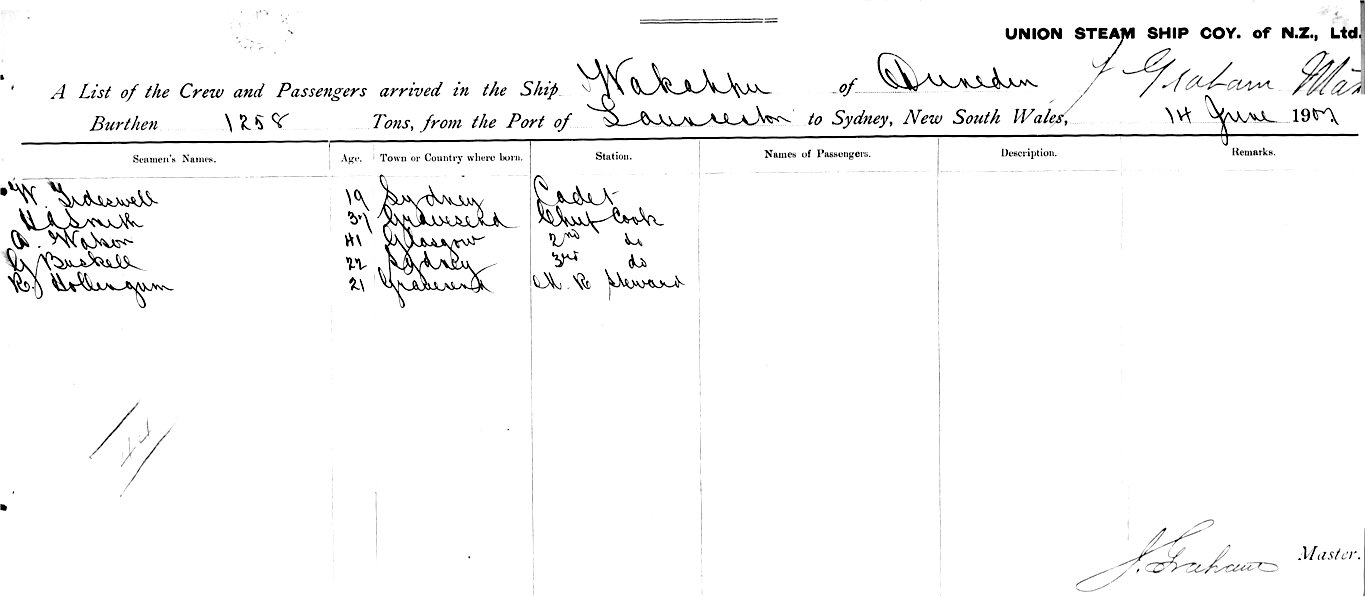 UNION STEAM SHIP COY. of N.Z., Ltd.
A List of the Crew and Passengers arrived in the Ship Wakatipu of Dunedin J Graham Mas
Burthen 1258 Tons, from the Port of Launceston to Sydney, New South Wales, 14 June 1902
Seamen's Names. Age. Town or Country where born. Station. Names of Passengers. Description. Remarks.
W. Tideswell 19 Sydney Cadet
H A Smith 37 Gravesend Chief Cook
A. Watson 41 Glasgow 2nd do
G Buskell 22 Sydney 3rd do
R. Hollingum 21 Gravesend M. R Steward
44
J. Graham Master.